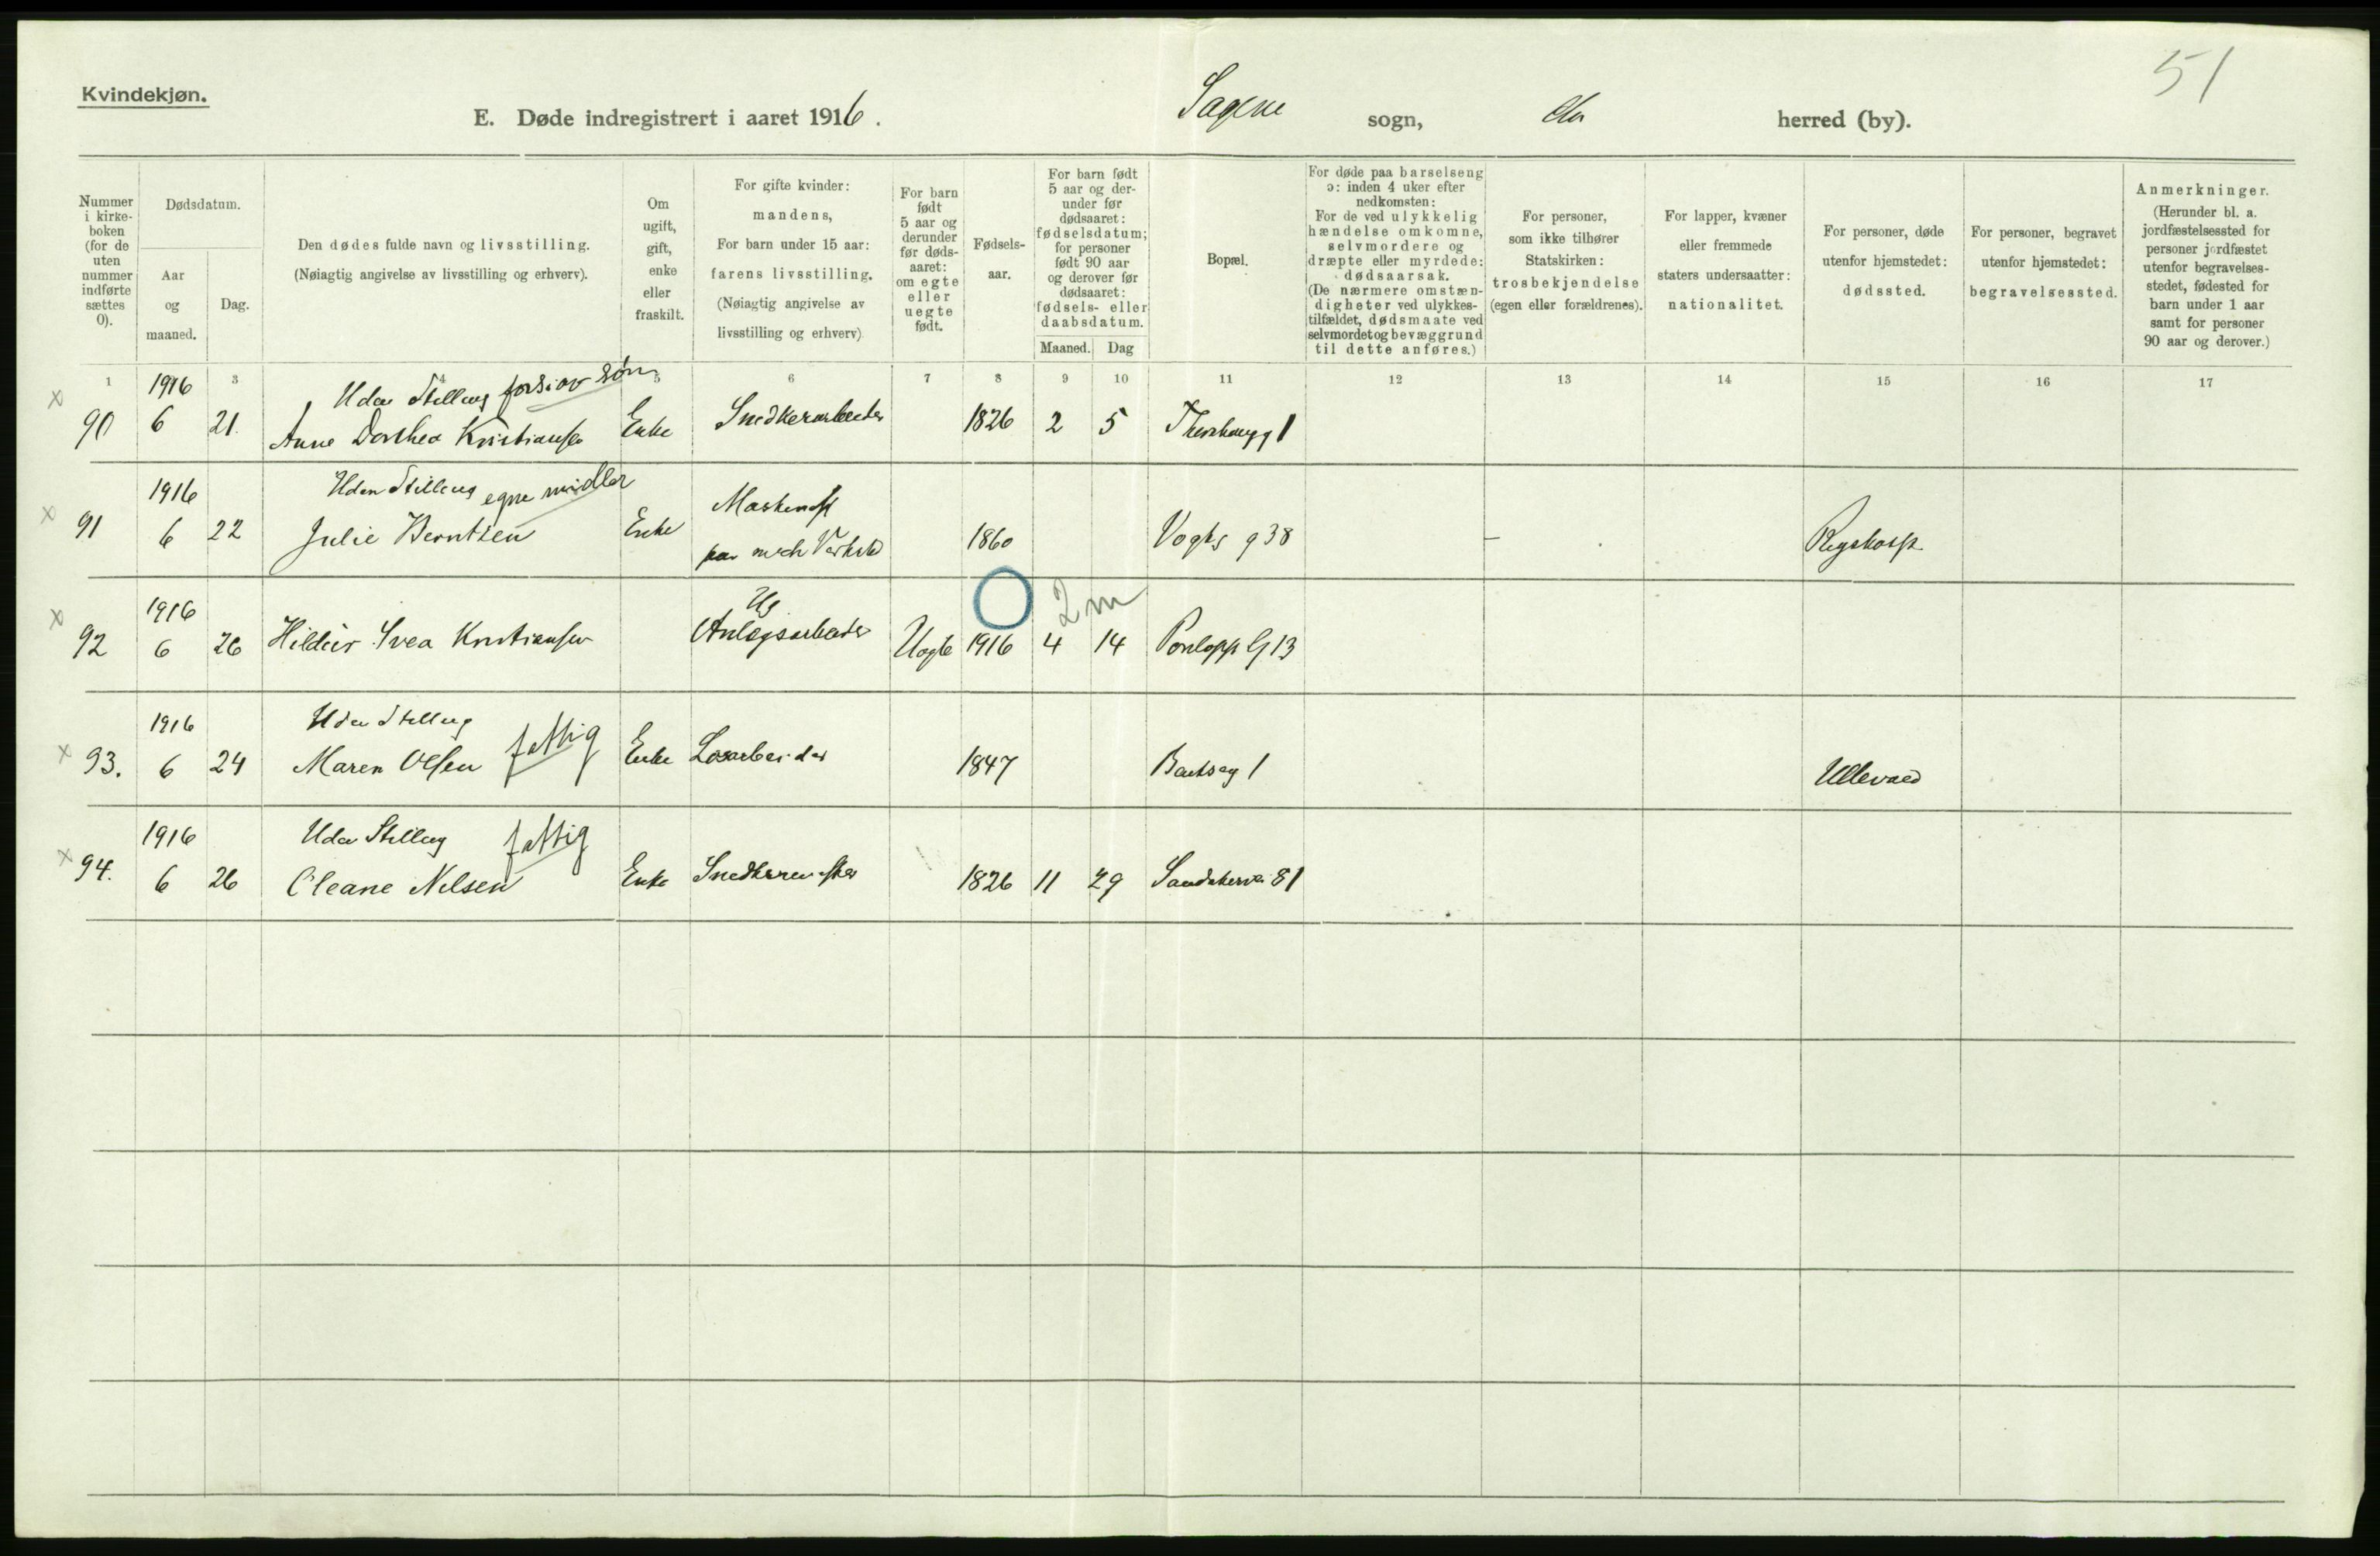 51
Kvindekjøn.
E. Døde indregistrert i aaret 1916. Sagene sogn, herred (by).
Nummer i kirkeboken (for de uten nummer indførte sættes 0).
Dødsdatum.
Aar og maaned.
Dag.
Den dødes fulde navn og livsstilling.
(Nøiagtig angivelse av livsstilling og erhverv).
Om ugift, gift, enke eller fraskilt.
For gifte kvinder: mandens,
For barn under 15 aar: farens livsstilling.
(Nøiagtig angivelse av livsstilling og erhverv)
For barn født 5 aar og derunder før dødsaaret: om egte eller uegte født.
Fødselsaar.
For barn født 5 aar og derunder før dødsaaret: fødselsdatum; for personer født 90 aar og derover før dødsaaret: fødsels- eller daabsdatum.
Maaned. Dag
Bopæl.
For døde paa barselseng ɔ: inden 4 uker efter nedkomsten:
For de ved ulykkelig hændelse omkomne, selvmordere og dræpte eller myrdede: dødsaarsak.
(De nærmere omstændigheter ved ulykkestilfældet, dødsmaate ved selvmordet og bevæggrund til dette anføres.)
For personer, som ikke tilhører Statskirken: trosbekjendelse (egen eller forældrenes).
For lapper, kvæner eller fremmede staters undersaatter: nationalitet.
For personer, døde utenfor hjemstedet: dødssted.
For personer, begravet utenfor hjemstedet: begravelsessted.
Anmerkninger.
(Herunder bl. a. jordfæstelsessted for personer jordfæstet utenfor begravelsesstedet, fødested for barn under 1 aar samt for personer 90 aar og derover.)
1 3 4 5 6 7 8 9 10 11 12 13 14 15 16 17
x 1916 Uden Stilling fors. av søn
90 6 21. Anne Dorthea Kristiansen Enke Snedkerarbeider 1826 2 5
x 1916 Uden Stilling egne midler Maskinist
91 6 22 Julie Berntsen Enke paa mek Verksted 1860 Vogts g 38 - Rigshosp.
x 1916 Ug 2 m
92 6 26 Kristiansen Anlægsarbeider Uegte 1916 4 14
x 1916 Uden Stilling fattig
93. 6 24 Maren Olsen Enke Løsarbeider 1847 Bentseg 1 Ullevaal
x 1916 Uden Stilling fattig
94. 6 26 Oleane Nilsen Enke Snedkermester 1826 11 29 Sandakervei 81